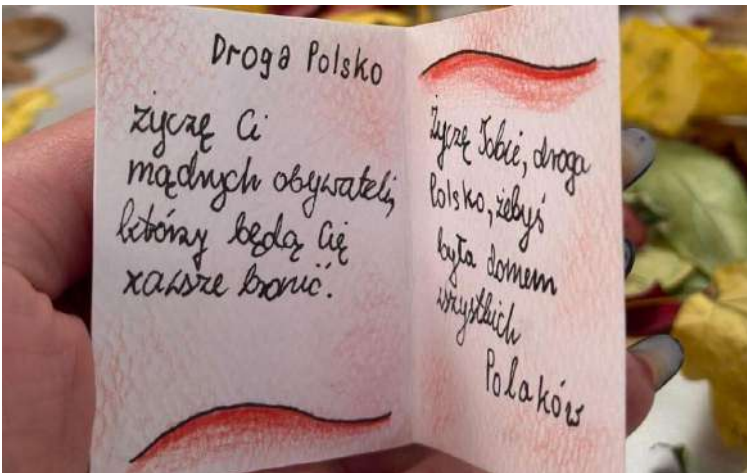 Droga Polsko
życzę Ci
mądrych obywateli,
którzy będą Cię
zawsze bronić.
Życzę Tobie, droga
Polsko, żebyś
była domem
wszystkich
Polaków